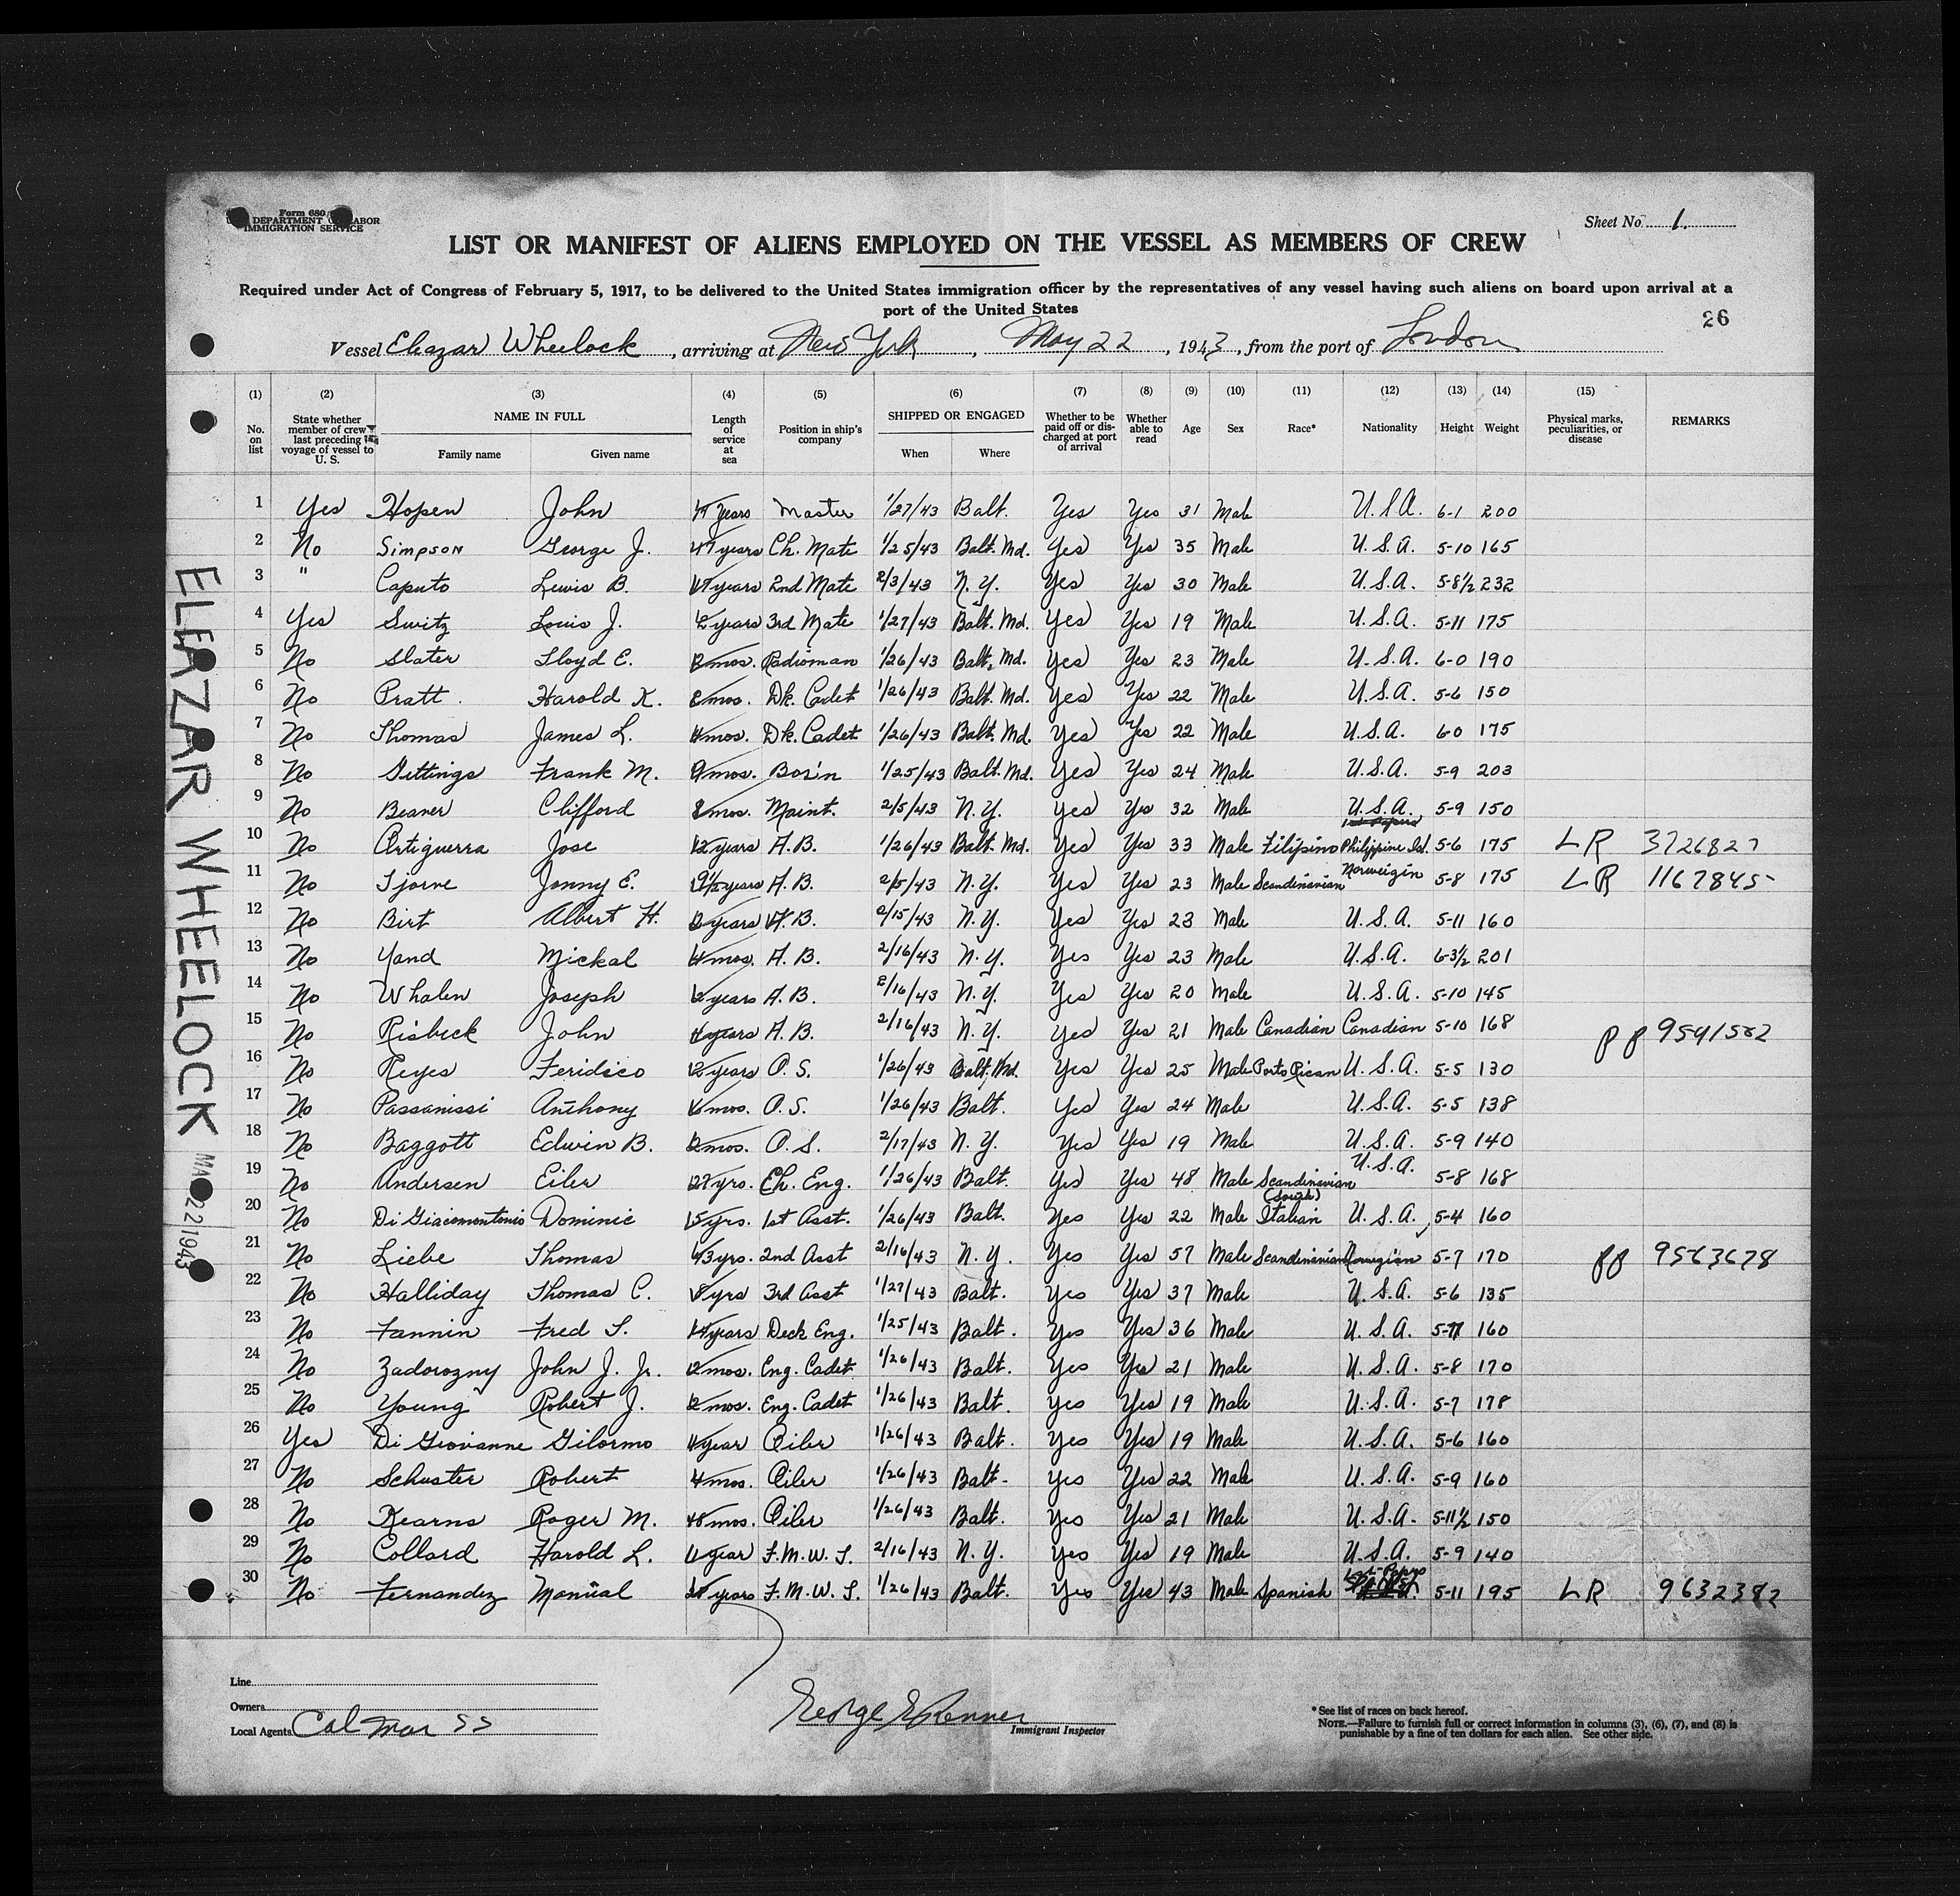 Form 680
U.S. DEPARTMENT OF LABOR
IMMIGRATION SERVICE
Sheet No. 1.
LIST OR MANIFEST OF ALIENS EMPLOYED ON THE VESSEL AS MEMBERS OF CREW
Required under Act of Congress of February 5, 1917, to be delivered to the United States immigration officer by the representatives of any vessel having such aliens on board upon arrival at a
port of the United States
26
Vessel Eleazar Wheelock, arriving at New York, May 22, 1943, from the port of London
(1) (2) (3) (4) (5) (6) (7) (8) (9) (10) (11) (12) (13) (14) (15)
No. on list State whether member of crew last preceding voyage of vessel to U. S. NAME IN FULL Family name Given name Length of service at sea Position in ship's company SHIPPED OR ENGAGED When Where Whether to be paid off or discharged at port of arrival Whether able to read Age Sex Race* Nationality Height Weight Physical marks, peculiarities, or disease REMARKS
1 Yes Hopen John years Master 1/27/43 Balt. Yes Yes 31 Male U.S.A. 6-1 200
2 No Simpson George J. years Ch. Mate 1/25/43 Balt. Md. Yes Yes 35 Male U.S.A. 5-10 165
3 " Caputo Lewis B. years 2nd Mate 2/3/43 N.Y. Yes Yes 30 Male U.S.A. 5-8½ 232
4 Yes Switz Louis J. years 3rd Mate 1/27/43 Balt. Md. Yes Yes 19 Male U.S.A. 5-11 175
5 No Slater Lloyd E. mos. Radioman 1/26/43 Balt. Md. Yes Yes 23 Male U.S.A. 6-0 190
6 No Pratt Harold K. mos. Dk. Cadet 1/26/43 Balt. Md. Yes Yes 22 Male U.S.A. 5-6 150
7 No Thomas James L. mos. Dk. Cadet 1/26/43 Balt. Md. Yes Yes 22 Male U.S.A. 6-0 175
8 No Gettings Frank M. mos. Bos'n 1/25/43 Balt. Md. Yes Yes 24 Male U.S.A. 5-9 203
9 No Beaner Clifford mos. Maint. 2/5/43 N.Y. Yes Yes 32 Male U.S.A. 5-9 150
10 No Artiguerra Jose years A.B. 1/26/43 Balt. Md. Yes Yes 33 Male Filipino Philippine Isl. 5-6 175 LR 3726827
11 No Tjorne Jonny E. years A.B. 2/5/43 N.Y. Yes Yes 23 Male Scandinavian Norweigin 5-8 175 LR 1167845
12 No Birt Albert H. years A.B. 2/15/43 N.Y. Yes Yes 23 Male U.S.A. 5-11 160
13 No Yand Mickal mos. A.B. 2/16/43 N.Y. Yes Yes 23 Male U.S.A. 6-3½ 201
14 No Whalen Joseph years A.B. 2/16/43 N.Y. Yes Yes 20 Male U.S.A. 5-10 145
15 No Risbeck John years A.B. 2/16/43 N.Y. Yes Yes 21 Male Canadian Canadian 5-10 168 PP 9591502
16 No Reyes Feridico years O.S. 1/26/43 Balt. Md. Yes Yes 25 Male Porto Rican U.S.A. 5-5 130
17 No Passanissi Anthony mos. O.S. 1/26/43 Balt. Yes Yes 24 Male U.S.A. 5-5 138
18 No Baggott Edwin B. mos. O.S. 2/17/43 N.Y. Yes Yes 19 Male U.S.A. 5-9 140
19 No Andersen Eiler yrs. Ch. Eng. 1/26/43 Balt. Yes Yes 48 Male Scandinavian U.S.A. 5-8 168
20 No Di Giacomontonio Dominic yrs. 1st Asst. 1/26/43 Balt. Yes Yes 22 Male (South) Italian U.S.A. 5-4 160
21 No Liebe Thomas yrs. 2nd Asst 2/16/43 N.Y. Yes Yes 57 Male Scandinavian Norwegian 5-7 170 PP 9563678
22 No Halliday Thomas C. yrs 3rd Asst 1/27/43 Balt. Yes Yes 37 Male U.S.A. 5-6 135
23 No Fannin Fred T. years Deck Eng. 1/25/43 Balt. Yes Yes 36 Male U.S.A. 160
24 No Zadorozny John J. Jr. mos. Eng. Cadet 1/26/43 Balt. Yes Yes 21 Male U.S.A. 5-8 170
25 No Young Robert J. mos. Eng. Cadet 1/26/43 Balt. Yes Yes 19 Male U.S.A. 5-7 178
26 Yes Di Giovanne Gilormo year Oiler 1/26/43 Balt. Yes Yes 19 Male U.S.A. 5-6 160
27 No Schuster Robert mos. Oiler 1/26/43 Balt. Yes Yes 22 Male U.S.A. 5-9 160
28 No Kearns Roger M. mos. Oiler 1/26/43 Balt. Yes Yes 21 Male U.S.A. 5-11½ 150
29 No Collard Harold L. year F.M.W.T. 2/16/43 N.Y. Yes Yes 19 Male U.S.A. 5-9 140
30 No Fernandez Manuel years F.M.W.T. 1/26/43 Balt. Yes Yes 43 Male Spanish 5-11 195 LR 9632382
ELEAZAR WHEELOCK MAY 22 1943
Line
Owners
Local Agents Calmar SS
George E Renner
Immigrant Inspector
* See list of races on back hereof.
NOTE.—Failure to furnish full or correct information in columns (3), (6), (7), and (8) is
punishable by a fine of ten dollars for each alien. See other side.